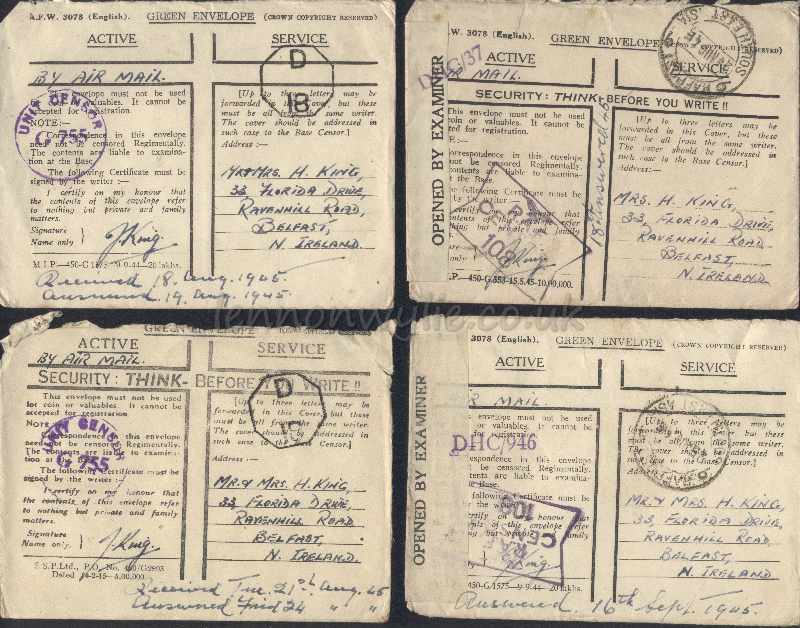 A.F.W. 3078 (English). GREEN ENVELOPE (CROWN COPYRIGHT RESERVED)
ACTIVE SERVICE
BY AIR MAIL.
This envelope must not be used
for coin or valuables. It cannot be
accepted for registration.
NOTE:—
Correspondence in this envelope
need not be censored Regimentally.
The contents are liable to examina-
tion at the Base.
The following Certificate must be
signed by the writer :—
I certify on my honour that
the contents of this envelope refer
to nothing but private and family
matters.
Signature
Name only
J. King
M.I.P.—450-G 1575—9-9-44—20 lakhs.
UNIT CENSOR
G 755
D
8
[Up to three letters may be
forwarded in this Cover, but these
must be all from the same writer.
The cover should be addressed in
such case to the Base Censor.]
Address :—
MR & MRS. H. KING,
33, FLORIDA DRIVE,
RAVENHILL ROAD,
BELFAST,
N. IRELAND.
Received 18. Aug. 1945.
Answered 19. Aug. 1945.
W. 3078 (English). GREEN ENVELOPE (CROWN COPYRIGHT RESERVED)
ACTIVE SERVICE
DHC/37
MAIL.
SECURITY: THINK- BEFORE YOU WRITE !!
OPENED BY EXAMINER
This envelope must not be used
coin or valuables. It cannot
ted for registration.
E:—
orrespondence in this envelope
not be censored Regimentally.
contents are liable to examina-
t the Base.
he following Certificate must be
honour that
of this envelope refer
thing but private and family
only
J. King
.P.—450-G.353-15.5.45-10,00,000.
[Up to three letters may be
forwarded in this Cover, but these
must be all from the same writer.
The cover should be addressed in
such case to the Base Censor.]
Address :—
MRS. H. KING,
33, FLORIDA DRIVE,
RAVENHILL ROAD
BELFAST,
N. IRELAND.
GREEN ENVELOPE
ACTIVE SERVICE
BY AIR MAIL.
SECURITY: THINK- BEFORE YOU WRITE !!
This envelope must not be used
for coin or valuables. It cannot be
accepted for registration.
NOTE
Correspondence in this envelope
need not be censored Regimentally.
The contents are liable to examina-
tion at the Base.
The following Certificate must be
signed by the writer :—
I certify on my honour that
the contents of this envelope refer
to nothing but private and family
matters.
Signature
Name only.
J. King.
S S.P.Ltd., P.O. No. 460/G2805
Dated 14-2-45— 5,00,000.
UNIT CENSOR
G 755
D
[Up to three letters may be
forwarded in this Cover, but these
must be all from the same writer.
The cover should be addressed in
such case to the Base Censor.]
Address :—
MR. & MRS. H. KING,
33 FLORIDA DRIVE,
RAVENHILL ROAD
BELFAST,
N. IRELAND.
Received Tue. 21st Aug. 45
Answered Frid 24 " "
3078 (English). GREEN ENVELOPE (CROWN COPYRIGHT RESERVED)
ACTIVE SERVICE
AIR MAIL.
OPENED BY EXAMINER
envelope must not be used
or valuables. It cannot be
registration.
DHC/946
espondence in this envelope
be censored Regimentally.
ontents are liable to examina-
Base.
following Certificate must be
the writer
certify on my honour that
nts of this envelope refer
but private and family
J. King
450-G.1575—9-9-44—20 lakhs.
[Up to three letters may be
forwarded in this Cover, but these
must be all from the same writer.
The cover should be addressed in
such case to the Base Censor.]
Address :—
MR. & MRS. H. KING,
33, FLORIDA DRIVE,
RAVENHILL ROAD
BELFAST,
N. IRELAND.
Answered. 16th Sept. 1945.
lennonwylie.co.uk